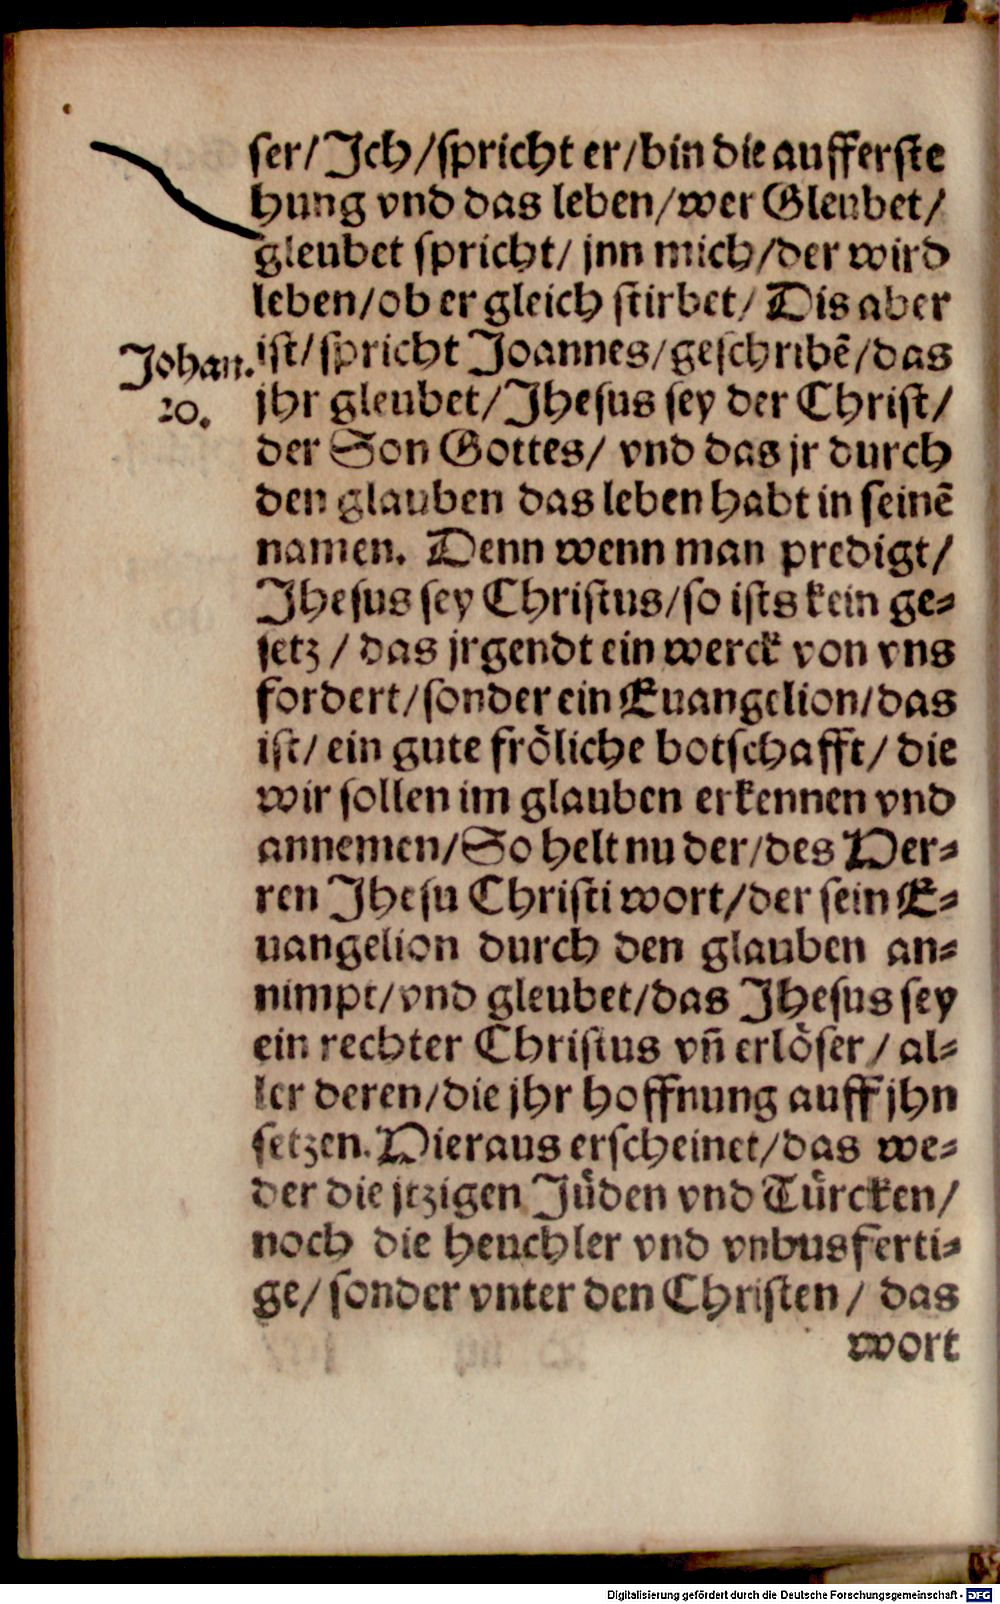 ser/ Jch/ spricht er/ bin die aufferste
hung vnd das leben/ wer Gleubet/
gleubet spricht/ jnn mich/ der wird
leben/ ob er gleich stirbet/ Dis aber
Johan.
20.
ist/ spricht Joannes/ geschribē/ das
jhr gleubet/ Jhesus sey der Christ/
der Son Gottes/ vnd das jr durch
den glauben das leben habt in seinē
namen. Denn wenn man predigt/
Jhesus sey Christus/ so ists kein ge⸗
setz/ das jrgendt ein werck von vns
fordert/ sonder ein Euangelion/ das
ist/ ein gute froͤliche botschafft/ die
wir sollen im glauben erkennen vnd
annemen/ So helt nu der/ des Her⸗
ren Jhesu Christi wort/ der sein E⸗
uangelion durch den glauben an⸗
nimpt/ vnd gleubet/ das Jhesus sey
ein rechter Christus vñ erloͤser/ al⸗
ler deren/ die jhr hoffnung auff jhn
setzen. Hieraus erscheinet/ das we⸗
der die jtzigen Juͤden vnd Tuͤrcken/
noch die heuchler vnd vnbusferti⸗
ge/ sonder vnter den Christen/ das
wort
Digitalisierung gefördert durch die Deutsche Forschungsgemeinschaft - DFG